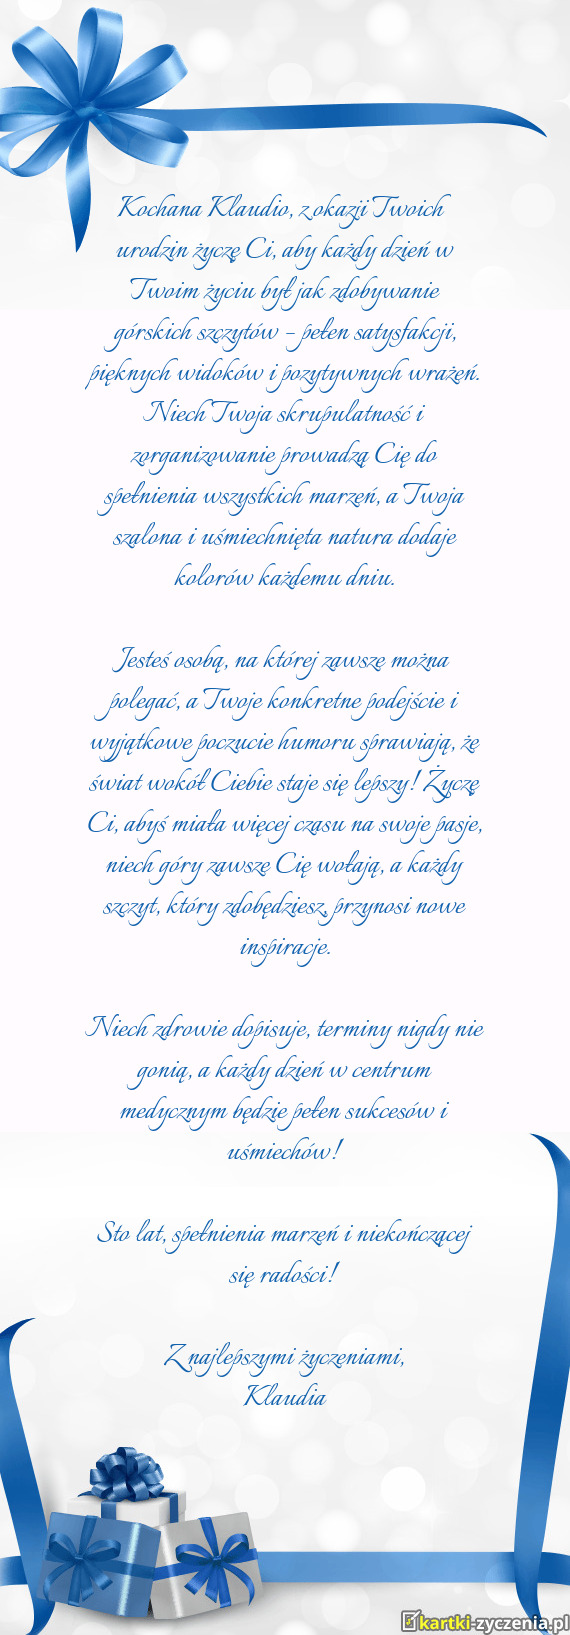 Kochana Klaudio, z okazji Twoich
urodzin życzę Ci, aby każdy dzień w
Twoim życiu był jak zdobywanie
górskich szczytów – pełen satysfakcji,
pięknych widoków i pozytywnych wrażeń.
Niech Twoja skrupulatność i
zorganizowanie prowadzą Cię do
spełnienia wszystkich marzeń, a Twoja
szalona i uśmiechnięta natura dodaje
kolorów każdemu dniu.
Jesteś osobą, na której zawsze można
polegać, a Twoje konkretne podejście i
wyjątkowe poczucie humoru sprawiają, że
świat wokół Ciebie staje się lepszy! Życzę
Ci, abyś miała więcej czasu na swoje pasje,
niech góry zawsze Cię wołają, a każdy
szczyt, który zdobędziesz, przynosi nowe
inspiracje.
Niech zdrowie dopisuje, terminy nigdy nie
gonią, a każdy dzień w centrum
medycznym będzie pełen sukcesów i
uśmiechów!
Sto lat, spełnienia marzeń i niekończącej
się radości!
Z najlepszymi życzeniami,
Klaudia
kartki-zyczenia.pl